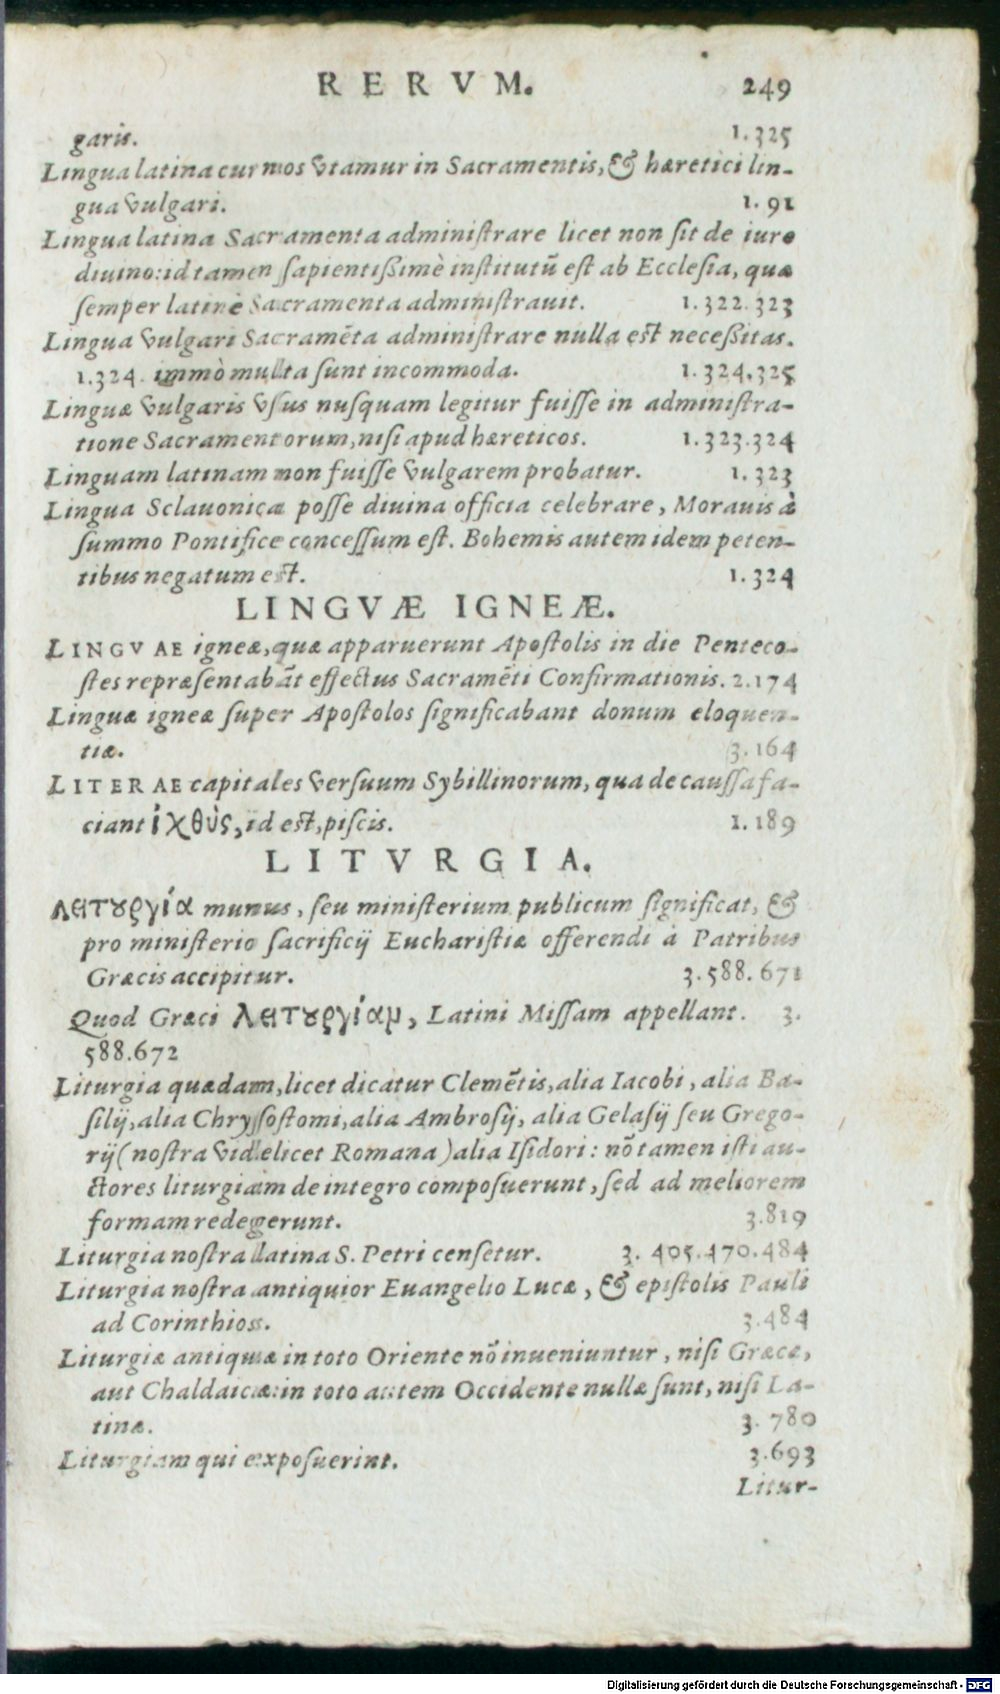 RERVM. 249
garis. 1.325
Lingua latina cur nos vtamur in Sacramentis, & hæretici lin-
gua vulgari. 1.91
Lingua latina Sacramenta administrare licet non sit de iure
diuino: id tamen sapientißimè institutū est ab Ecclesia, quæ
semper latinè Sacramenta administrauit. 1.322.323
Lingua vulgari Sacramēta administrare nulla est neceßitas.
1.324. immò multa sunt incommoda. 1.324.325
Linguæ vulgaris vsus nusquam legitur fuisse in administra-
tione Sacramentorum, nisi apud hæreticos. 1.323.324
Linguam latinam non fuisse vulgarem probatur. 1.323
Lingua Sclauonica posse diuina officia celebrare, Morauis à
summo Pontifice concessum est. Bohemis autem idem peten-
tibus negatum est. 1.324
LINGVÆ IGNEÆ.
LINGVAE igneæ, quæ apparuerunt Apostolis in die Penteco-
stes repræsentabāt effectus Sacramēti Confirmationis. 2.174
Linguæ igneæ super Apostolos significabant donum eloquen-
tiæ. 3.164
LITERAE capitales versuum Sybillinorum, qua de caussa fa-
ciant ἰχθὺς, id est, piscis. 1.189
LITVRGIA.
λειτουργία munus, seu ministerium publicum significat, &
pro ministerio sacrificij Eucharistiæ offerendi à Patribus
Græcis accipitur. 3.588.671
Quod Græci λειτουργίαμ, Latini Missam appellant. 3.
588.672
Liturgia quædam, licet dicatur Clemētis, alia Iacobi, alia Ba-
silij, alia Chrysostomi, alia Ambrosij, alia Gelasij seu Grego-
rij (nostra videlicet Romana) alia Isidori: nō tamen isti au-
ctores liturgiam de integro composuerunt, sed ad meliorem
formam redegerunt. 3.819
Liturgia nostra latina S. Petri censetur. 3. 405.470.484
Liturgia nostra antiquior Euangelio Lucæ, & epistolis Pauli
ad Corinthios. 3.484
Liturgiæ antiquæ in toto Oriente nō inueniuntur, nisi Græcæ,
aut Chaldaicæ: in toto autem Occidente nullæ sunt, nisi La-
tinæ. 3. 780
Liturgiam qui exposuerint. 3.693
Litur-
Digitalisierung gefördert durch die Deutsche Forschungsgemeinschaft - DFG